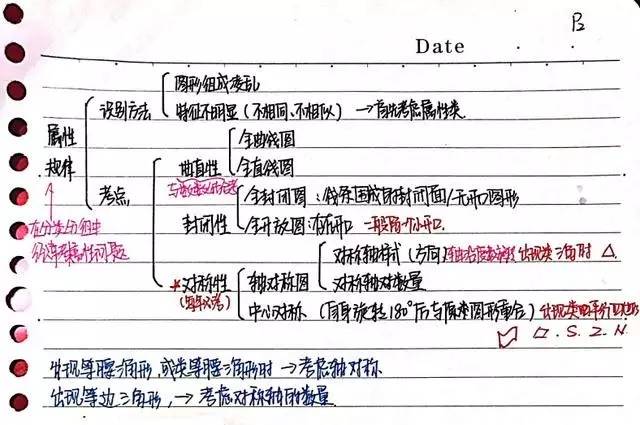 P2
Date
图形组成凌乱
识别方法
特征不明显（不相同、不相似）→首先考虑属性类
属性
规律
全曲线图
曲直性
全直线图
考点
全封闭图：线条围成封闭面/无开口图形
封闭性
全开放图：有开口 一般留一个小开口.
在分类分组中
对称轴样式（方向） 出现类三角时 △
*对称性
轴对称图
对称轴数量
中心对称（自身旋转180°后与原来图形重合）出现类平行四边形
▱.S.Z.N.
出现等腰三角形，或类等腰三角形时→考虑轴对称
出现等边三角形，→考虑对称轴的数量